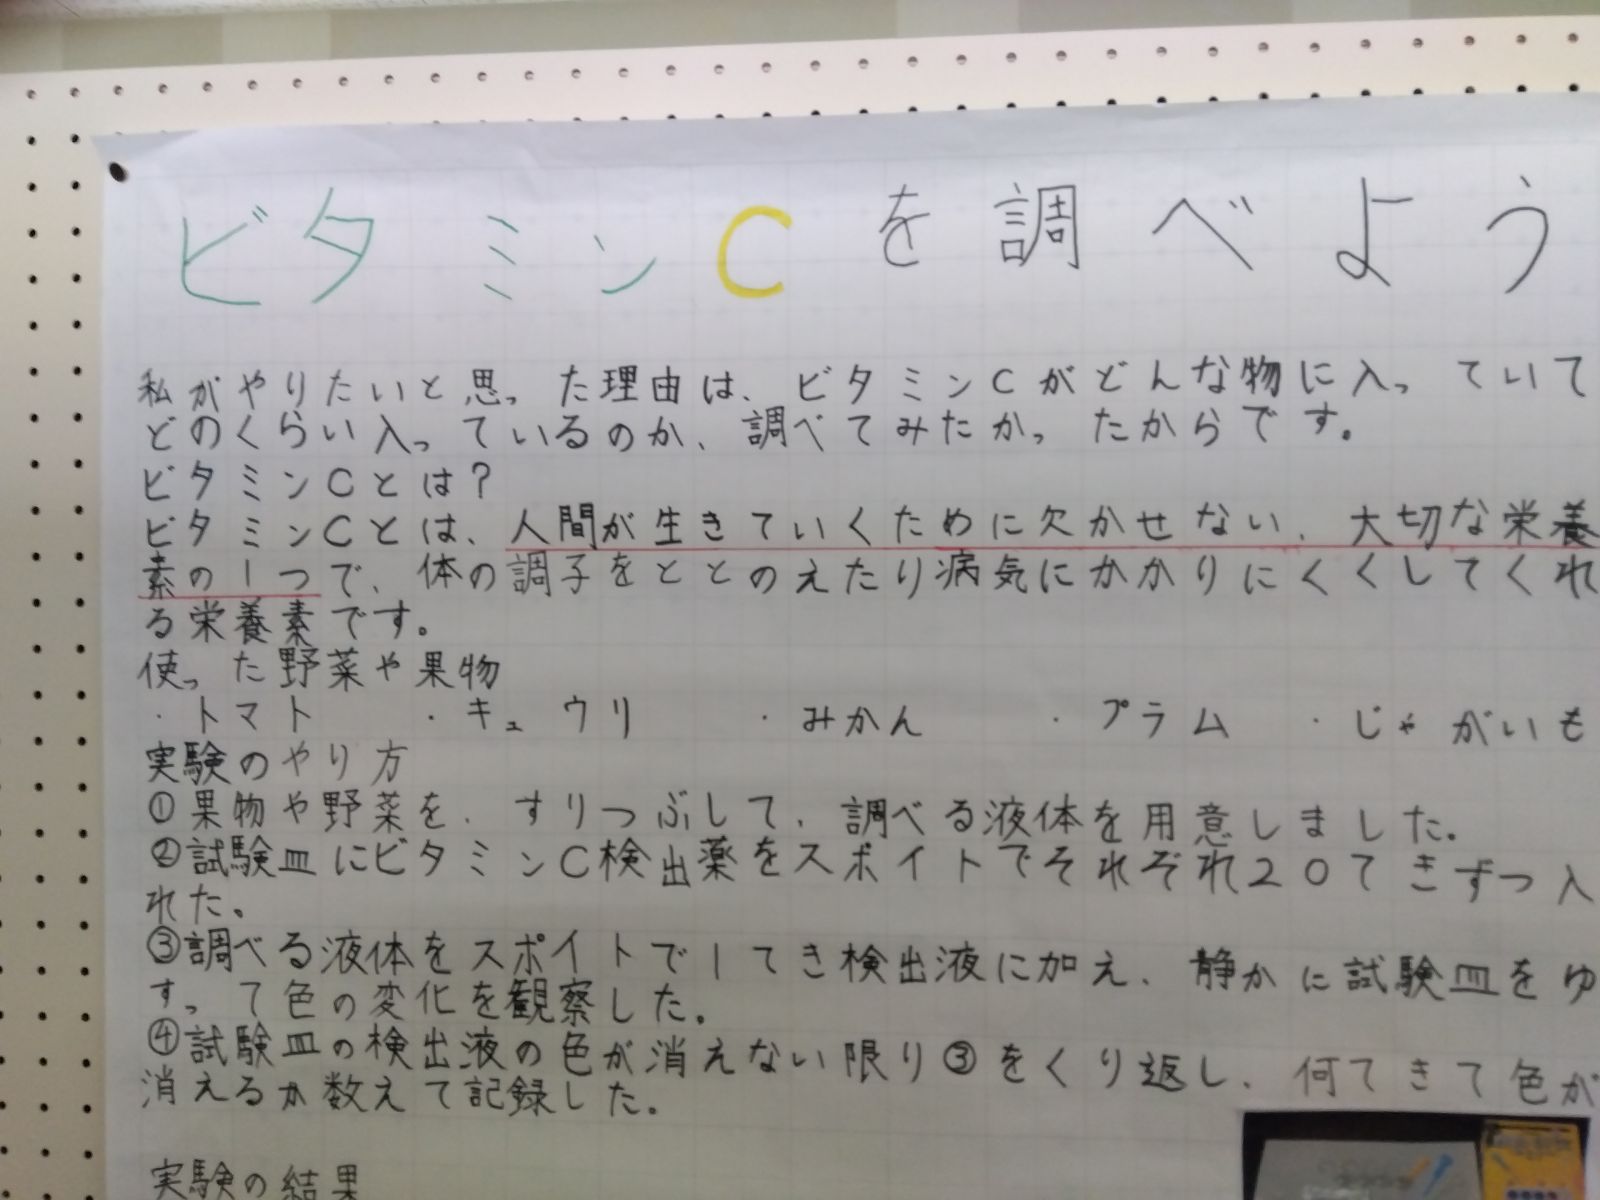 ビタミンCを調べよう
私がやりたいと思った理由は、ビタミンCがどんな物に入っていて
どのくらい入っているのか、調べてみたかったからです。
ビタミンCとは?
ビタミンCとは、人間が生きていくために欠かせない、大切な栄養
素の1つで、体の調子をととのえたり病気にかかりにくくしてくれ
る栄養素です。
使った野菜や果物
・トマト ・キュウリ ・みかん ・プラム ・じゃがいも
実験のやり方
①果物や野菜を、すりつぶして、調べる液体を用意しました。
②試験皿にビタミンC検出薬をスポイトでそれぞれ20てきずつ入
れた。
③調べる液体をスポイトで1てき検出液に加え、静かに試験皿をゆ
すって色の変化を観察した。
④試験皿の検出液の色が消えない限り③をくり返し、何てきて色が
消えるか数えて記録した。
実験の結果